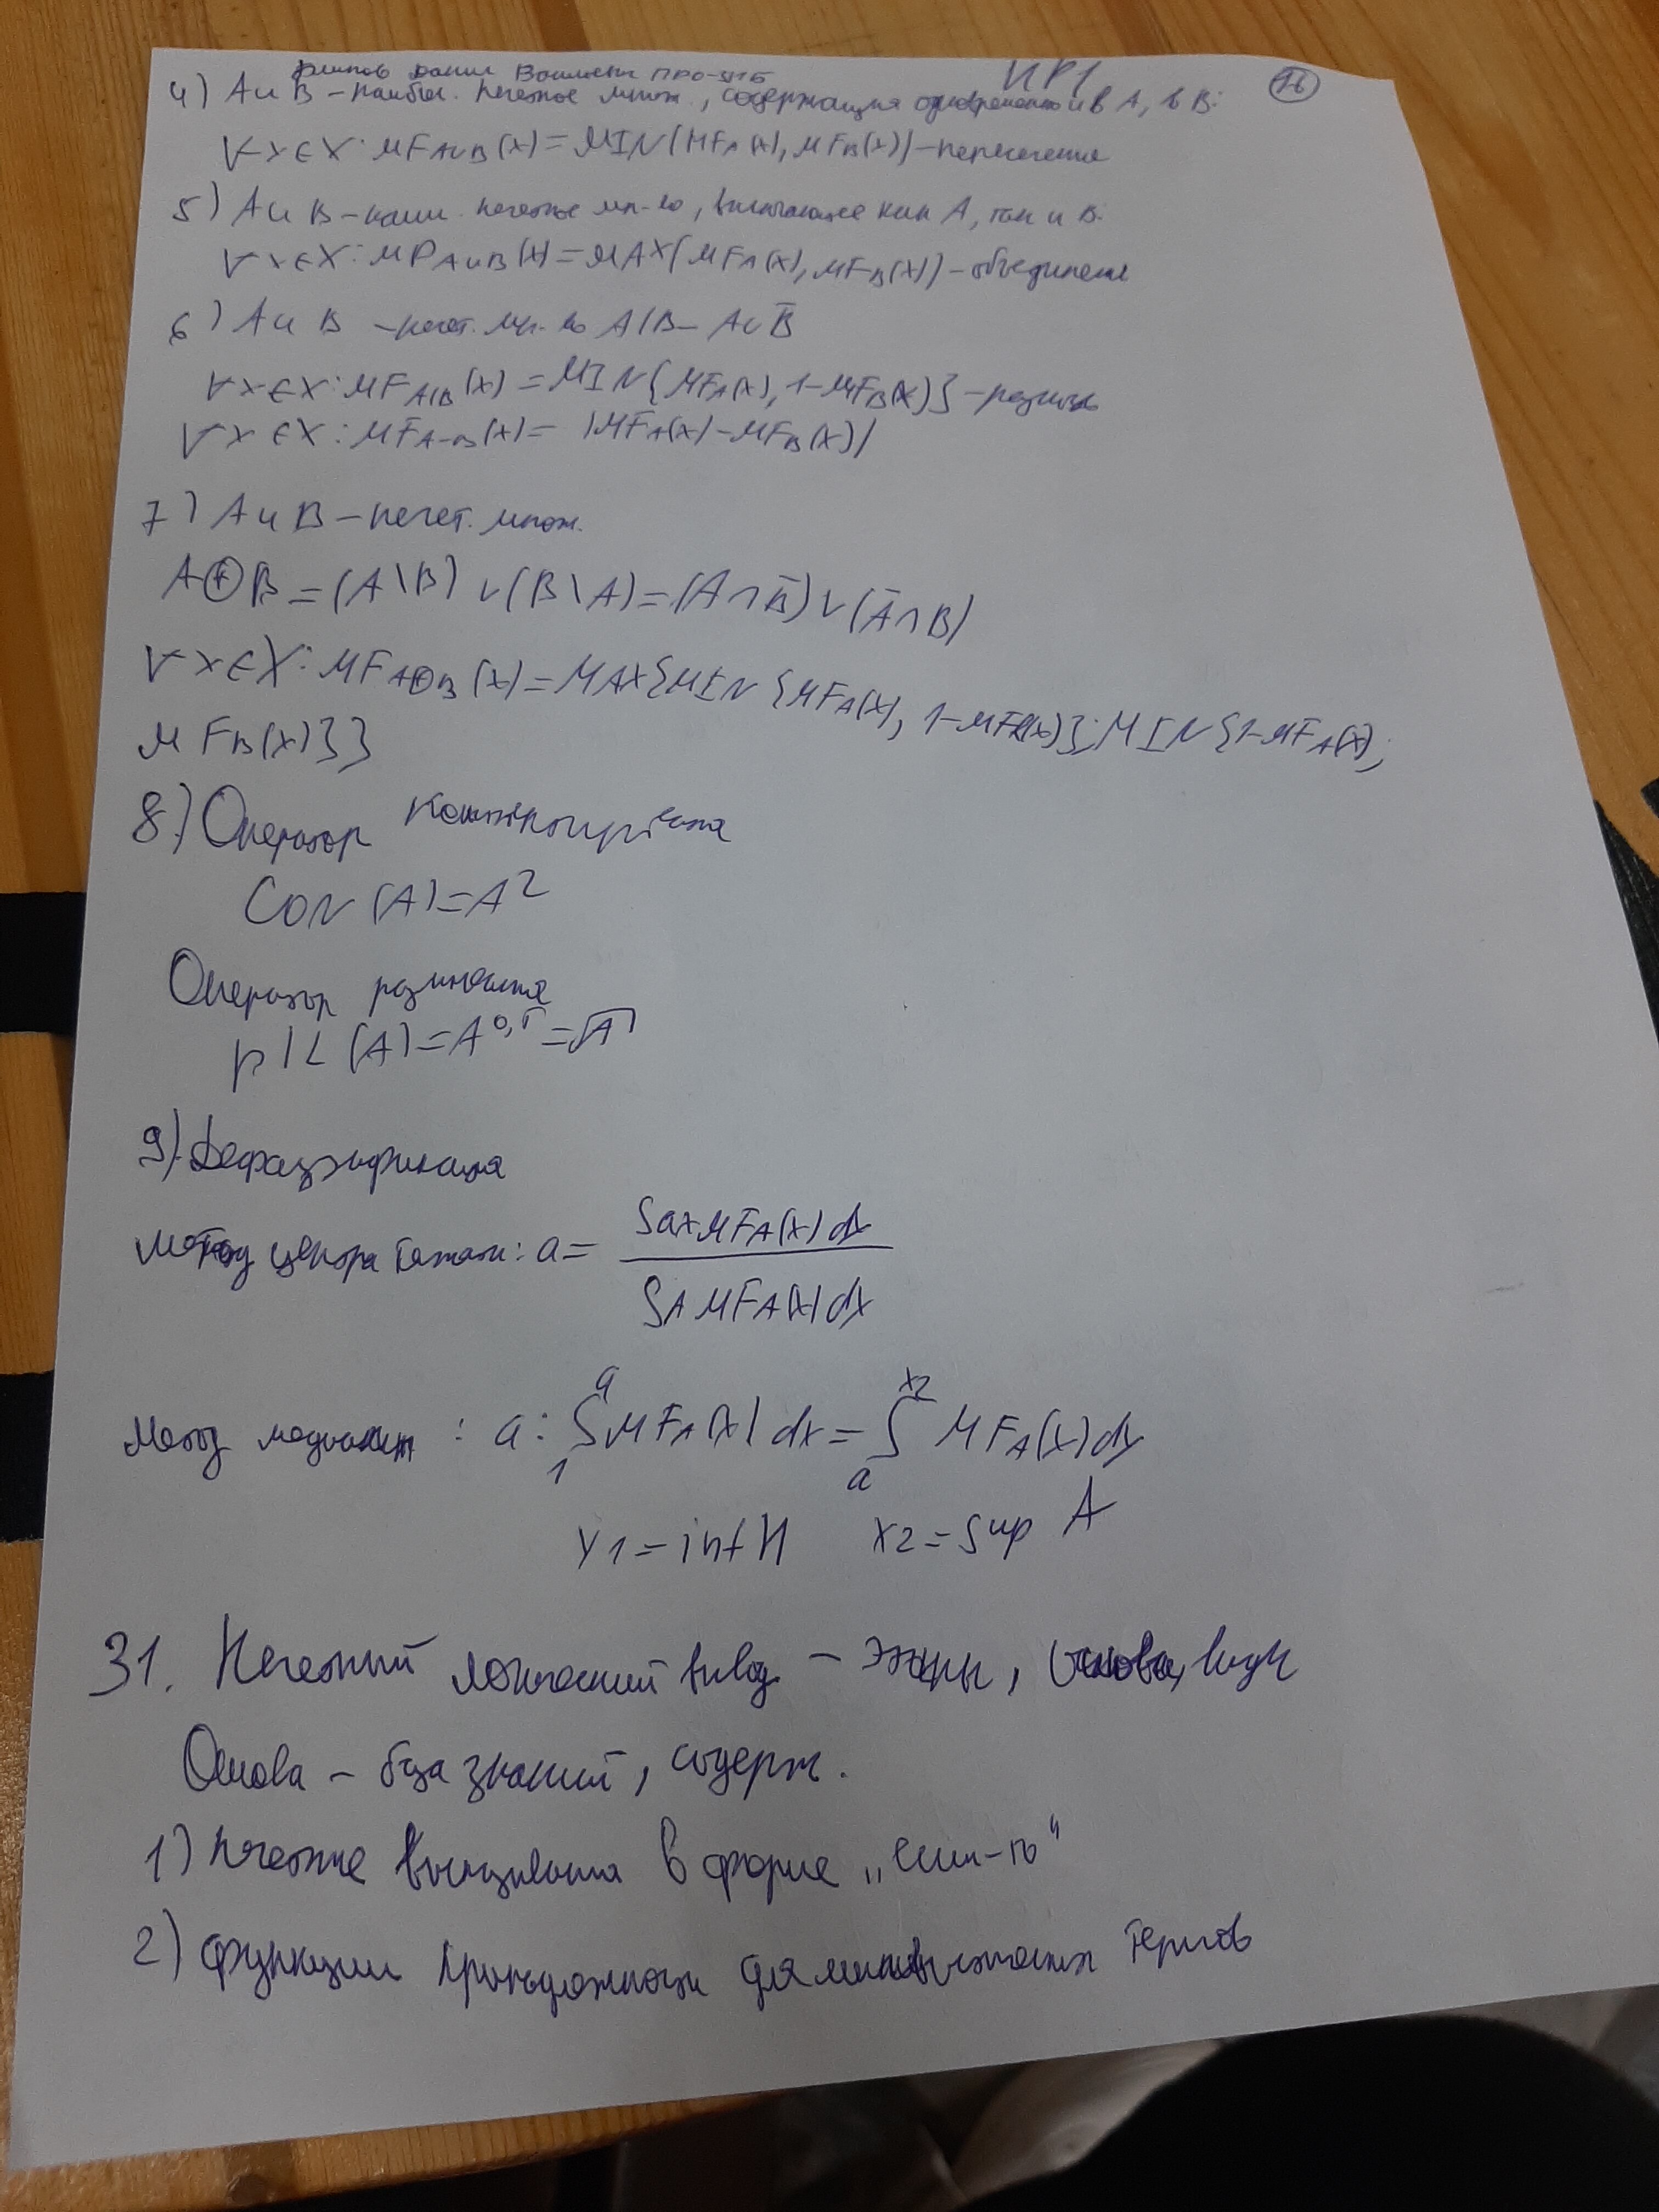 ПРО-511Б ИР1 16
4) A и B – наибол. нечеткое множ., содержащия одновременно и в A, в B:
∀x∈X: MF_A∪B(x)=MIN(MF_A(x), MF_B(x)) – пересечения
5) A и B – наим. нечеткое мн-во, включающее как A, так и B:
∀x∈X: MP_A∪B(x)=MAX(MF_A(x), MF_B(x)) – объединение
6) A и B – нечет. мн-во A|B – A∪B̅
∀x∈X: MF_A|B(x)=MIN{MF_A(x), 1–MF_B(x)} – разность
∀x∈X: MF_A–B(x)= |MF_A(x)–MF_B(x)|
7) A и B – нечет. множ.
A⊕B=(A\B)∨(B\A)=(A∩B̅)∨(A̅∩B)
∀x∈X: MF_A⊕B(x)=MAX{MIN{MF_A(x), 1–MF_B(x)}; MIN{1–MF_A(x);
MF_B(x)}}
8) Оператор
CON(A)=A²
Оператор размывания
DIL(A)=A^0,5=√A
9) Дефаззификация
Метод центра тяжести: a= ∫axMF_A(x)dx
∫_A MF_A(x)dx
Метод медианы: a: ∫_1^a MF_A(x)dx=∫_a^x2 MF_A(x)dx
x1=inf A x2=sup A
31. Нечеткий логический вывод – этапы, основа, виды
Основа – база знаний, содерж.
1) Нечеткие высказывания в форме „если-то"
2) Функции принадлежности для лингвистических термов